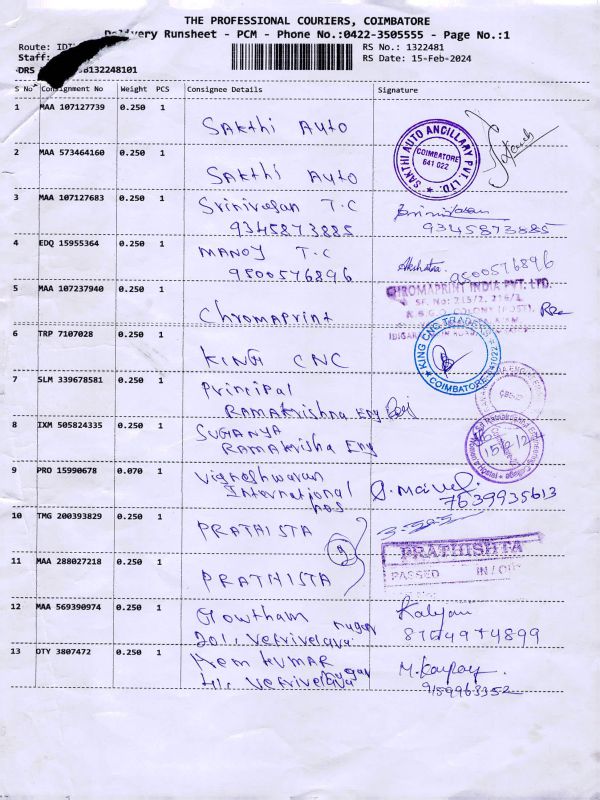 THE PROFESSIONAL COURIERS, COIMBATORE
Delivery Runsheet - PCM - Phone No.:0422-3505555 - Page No.:1
Route: RS No.: 1322481
Staff: RS Date: 15-Feb-2024
DRS B132248101
S No Consignment No Weight PCS Consignee Details Signature
1 MAA 107127739 0.250 1
Sakthi Auto
SAKTHI AUTO ANCILLARY PVT. LTD.
COIMBATORE
641 022
2 MAA 573464160 0.250 1
Sakthi Auto
3 MAA 107127683 0.250 1 Srinivasan T.C
9345873885 9345873885
4 EDQ 15955364 0.250 1 MANOJ T.C Akshatra
9500576896 9500576896
5 MAA 107237940 0.250 1 CHROMAPRINT INDIA PVT. LTD.
SF. No: 215/2, 216/2
Chromaprint
6 TRP 7107028 0.250 1 KING CNC TRADERS
KING CNC COIMBATORE-641022
7 SLM 339678581 0.250 1 Principal
Ramakrishna Eng
8 IXM 505824335 0.250 1 SUGANYA
Ramakrisha Eng
9 PRO 15990678 0.070 1 Vigneshwaran
International hos 7639935613
10 TMG 200393829 0.250 1 PRATHISTA
9
PRATHISHTA
PASSED IN/OUT
11 MAA 288027218 0.250 1
PRATHISTA
12 MAA 569390974 0.250 1 Gowtham Kalyani
201, Vetrivelaya nagar 8764974899
13 OTY 3807472 0.250 1 Prem kumar
41, Vetrivelaya nagar 9159963352